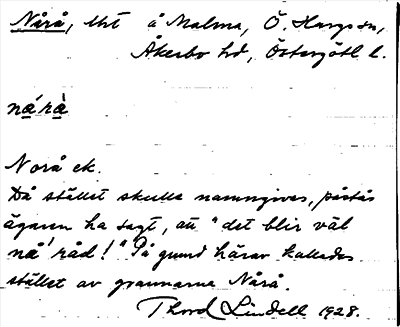 Nårå, lht å Malma, Ö. Hargs sn,
Åkerbo hd, Östergötl l.
ná̱rà̱
Norå ek.
Då stället skulle namngivas, påstås
ägaren ha sagt, att "det blir väl
nå' råd!" På grund härav kallades
stället av grannarna Nårå.
Thord Lindell 1928.